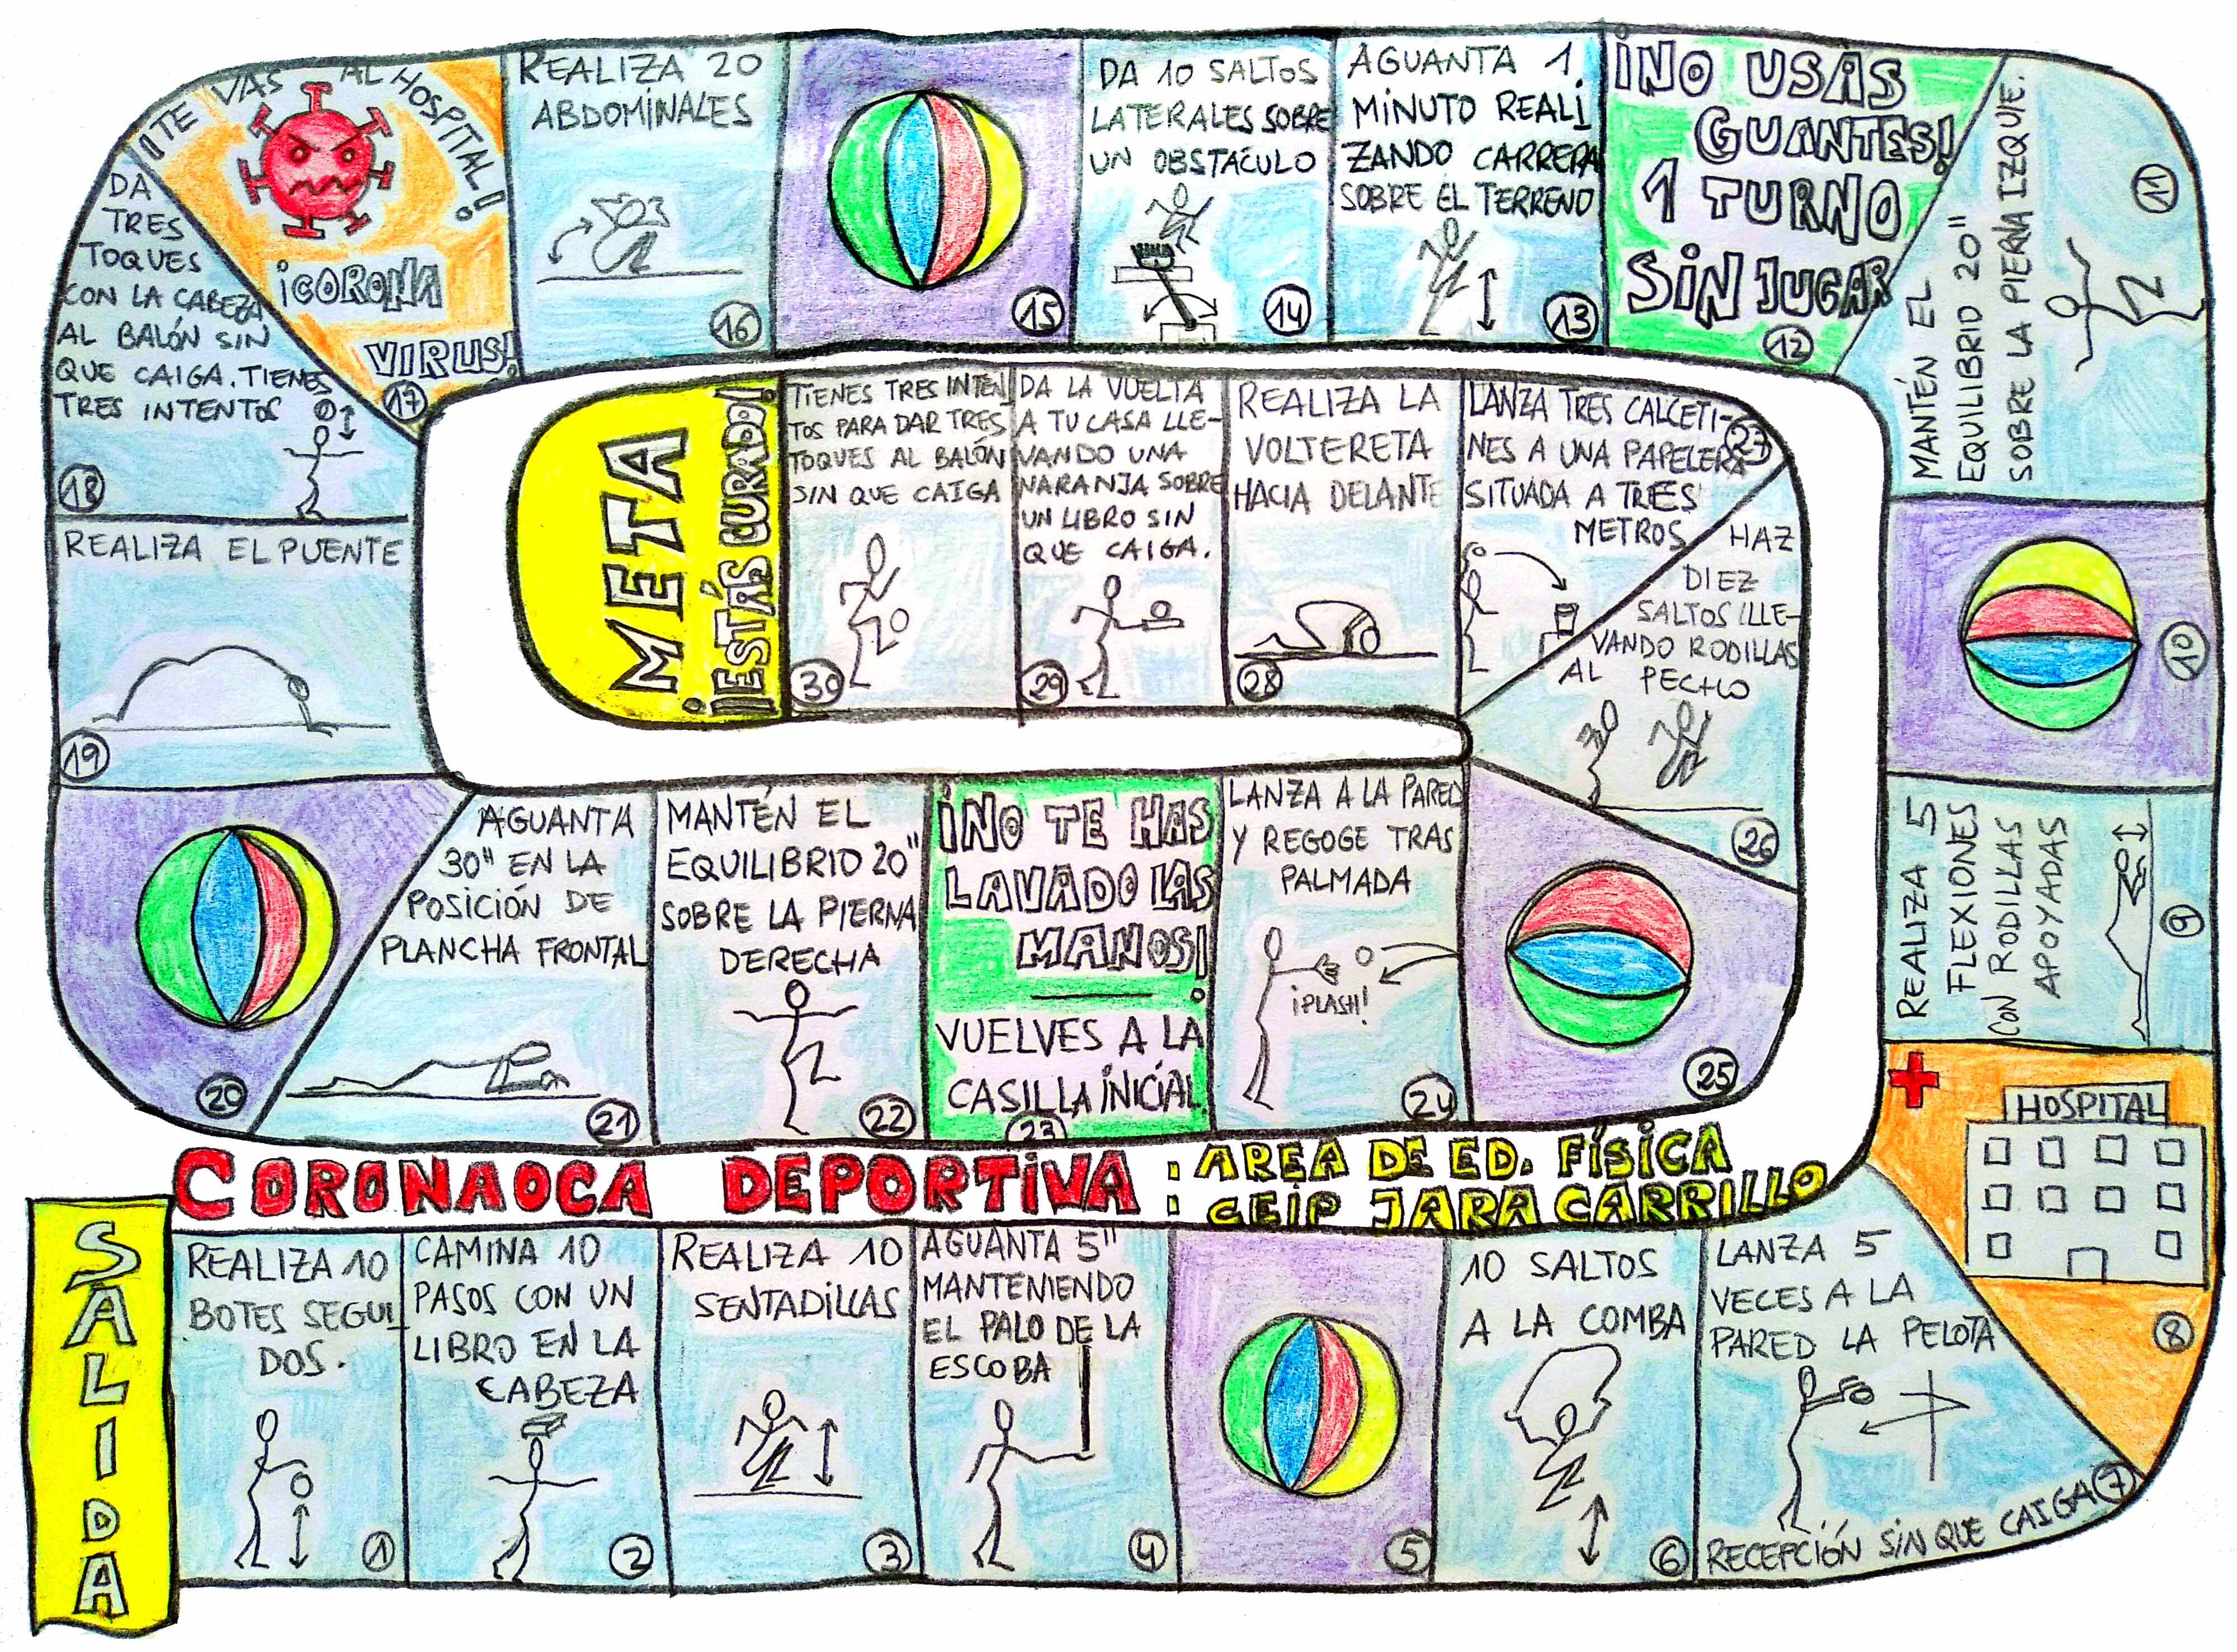 CORONAOCA DEPORTIVA:
AREA DE ED. FÍSICA
CEIP JARA CARRILLO
SALIDA
REALIZA 10
BOTES SEGUI
DOS.
1
CAMINA 10
PASOS CON UN
LIBRO EN LA
CABEZA
2
REALIZA 10
SENTADILLAS
3
AGUANTA 5"
MANTENIENDO
EL PALO DE LA
ESCOBA
4
5
10 SALTOS
A LA COMBA
6
LANZA 5
VECES A LA
PARED LA PELOTA
RECEPCIÓN SIN QUE CAIGA
7
HOSPITAL
8
REALIZA 5
FLEXIONES
CON RODILLAS
APOYADAS
9
10
MANTÉN EL
EQUILIBRIO 20"
SOBRE LA PIERNA IZQUIE.
11
¡NO USAS
GUANTES!
1 TURNO
SIN JUGAR
12
AGUANTA 1
MINUTO REALI
ZANDO CARRERA
SOBRE EL TERRENO
13
DA 10 SALTOS
LATERALES SOBRE
UN OBSTACÚLO
14
15
REALIZA 20
ABDOMINALES
16
¡TE VAS AL HOSPITAL!
¡CORONA
VIRUS!
17
DA
TRES
TOQUES
CON LA CABEZA
AL BALÓN SIN
QUE CAIGA. TIENES
TRES INTENTOS
18
REALIZA EL PUENTE
19
20
AGUANTA
30" EN LA
POSICIÓN DE
PLANCHA FRONTAL
21
MANTÉN EL
EQUILIBRIO 20"
SOBRE LA PIERNA
DERECHA
22
¡NO TE HAS
LAVADO LAS
MANOS!
VUELVES A LA
CASILLA INICIAL
23
LANZA A LA PARED
Y REGOGE TRAS
PALMADA
¡PLASH!
24
25
HAZ
DIEZ
SALTOS LLE-
VANDO RODILLAS
AL PECHO
26
LANZA TRES CALCETI-
NES A UNA PAPELERA
SITUADA A TRES
METROS
27
REALIZA LA
VOLTERETA
HACIA DELANTE
28
DA LA VUELTA
A TU CASA LLE-
VANDO UNA
NARANJA SOBRE
UN LIBRO SIN
QUE CAIGA.
29
TIENES TRES INTEN
TOS PARA DAR TRES
TOQUES AL BALÓN
SIN QUE CAIGA
30
META
¡ESTÁS CURADO!